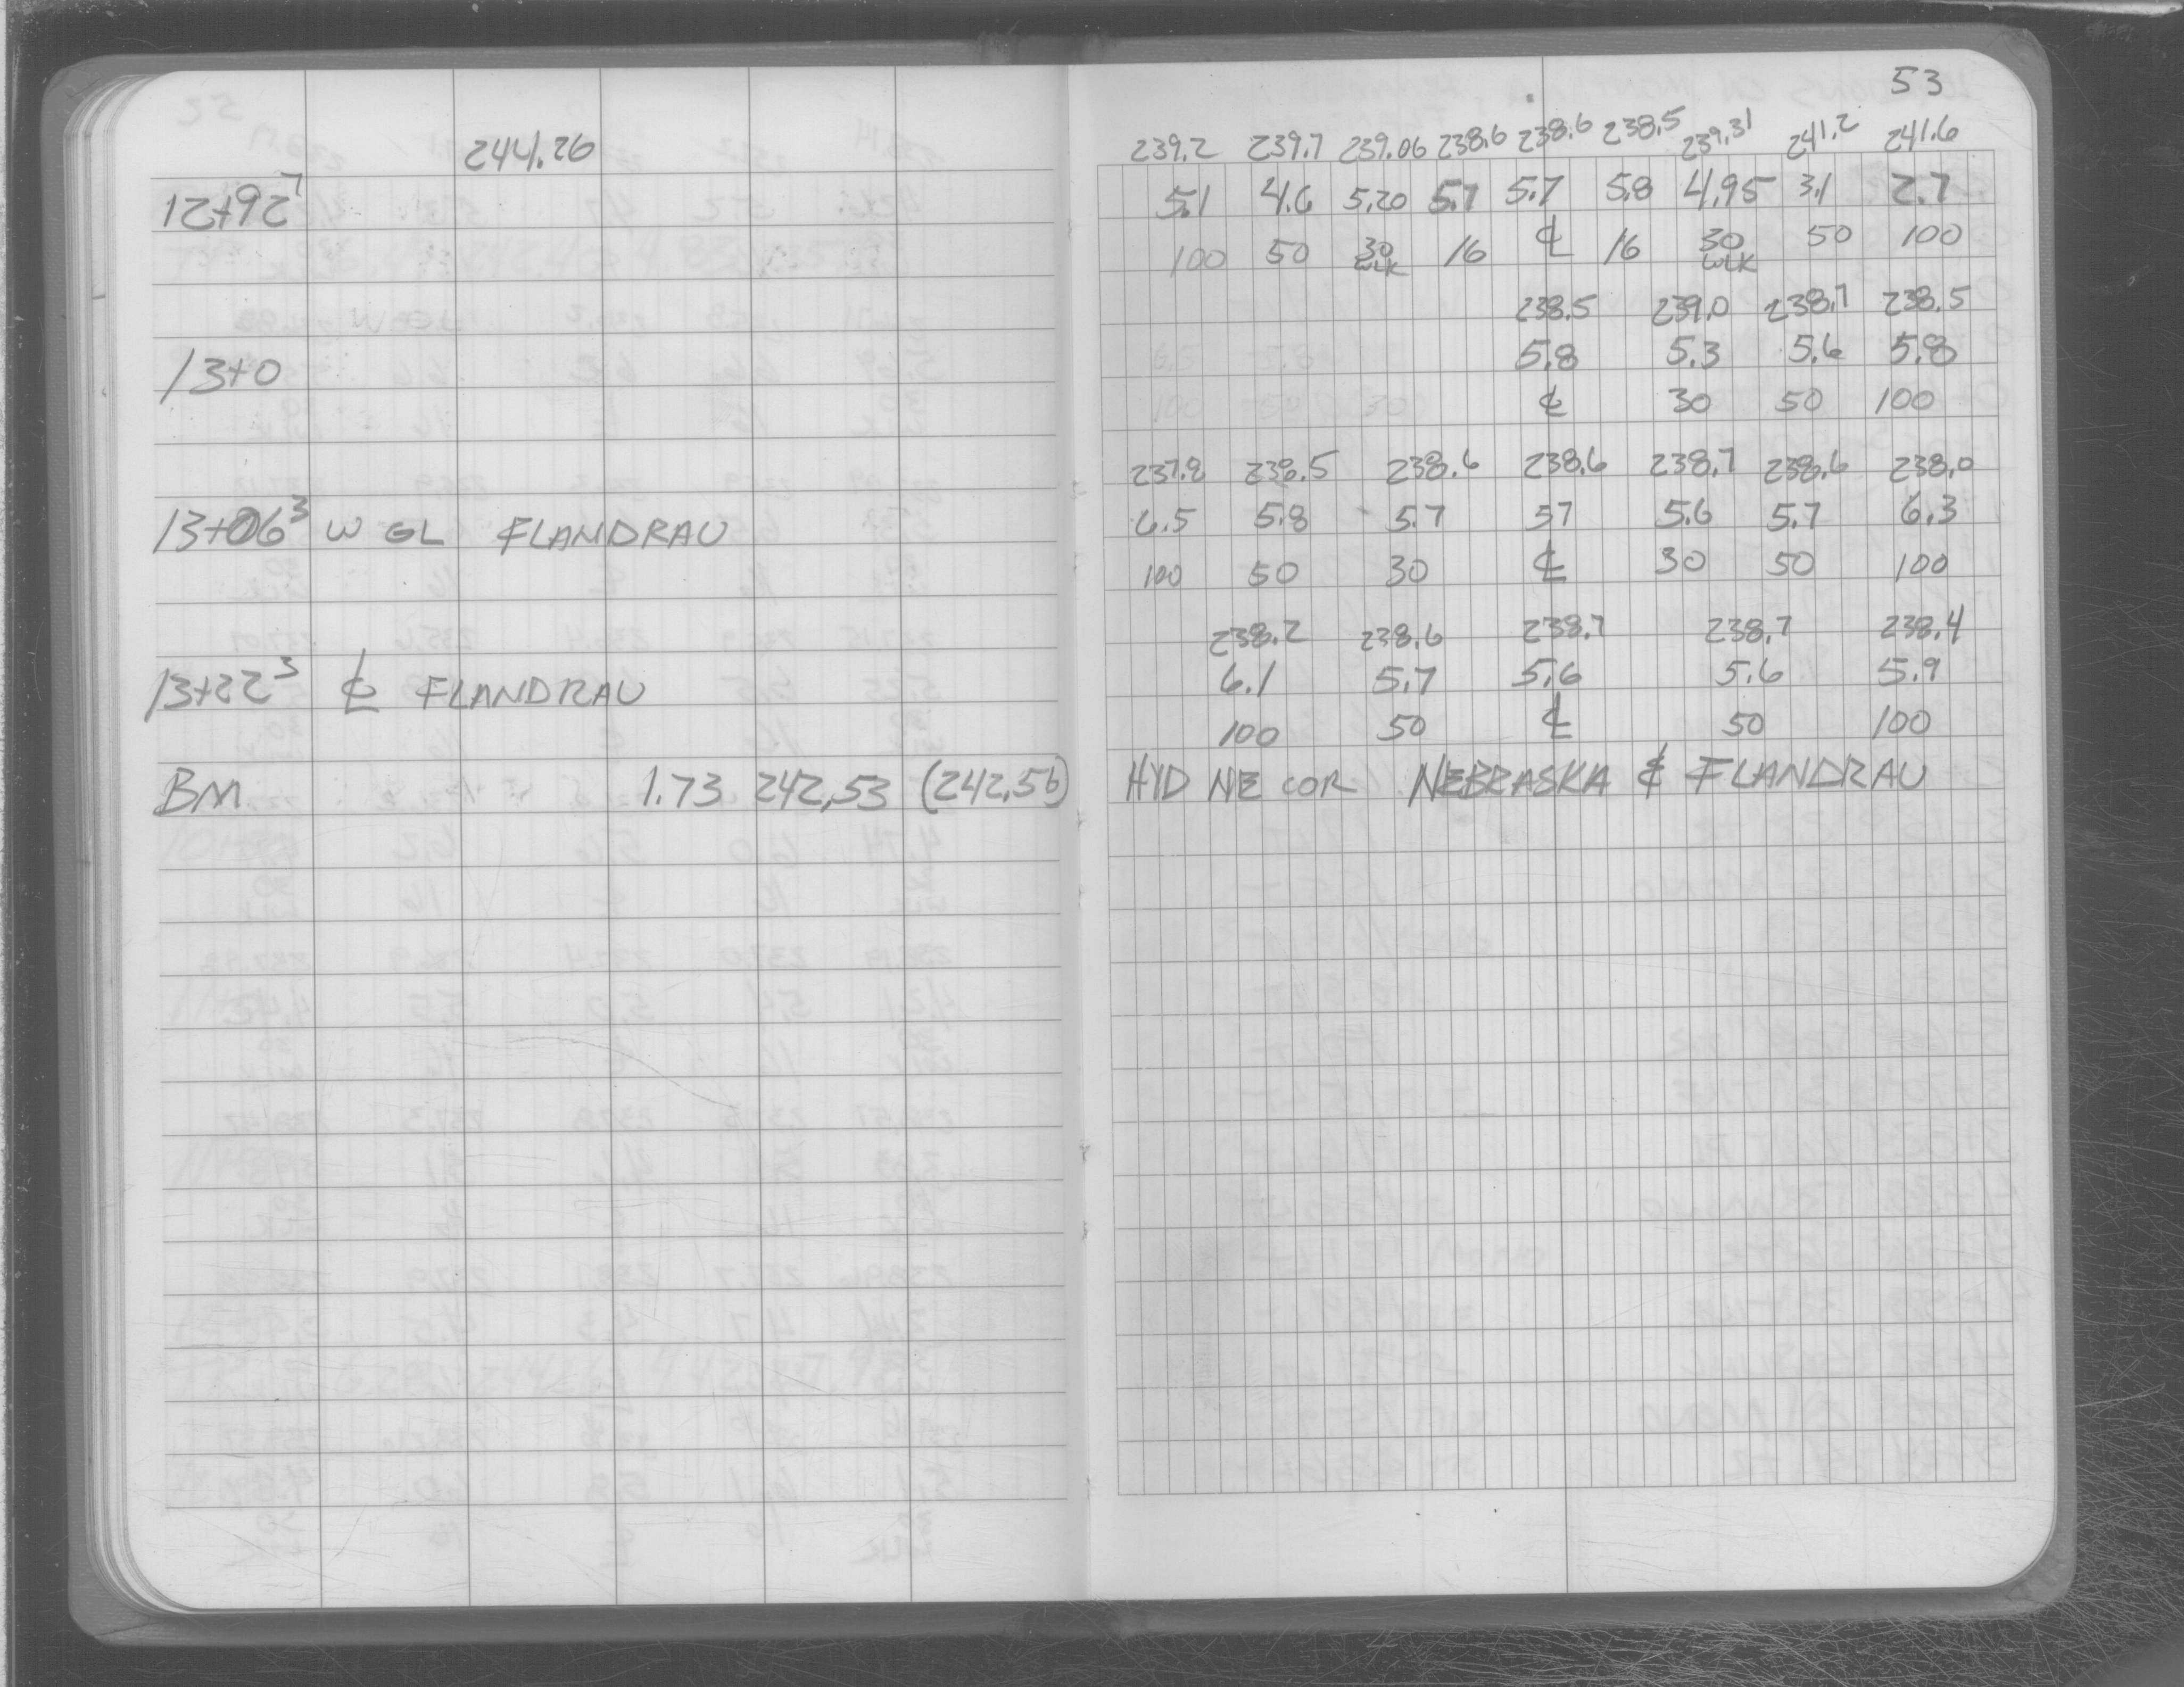 53
244.26
239.2 239.7 239.06 238.6 238.6 238.5 239.31 241.2 241.6
12+92⁷ 5.1 4.6 5.20 5.7 5.7 5.8 4.95 3.1 2.7
100 50 30 16 ℄ 16 30 50 100
WLK WLK
238.5 239.0 238.7 238.5
13+0 5.8 5.3 5.6 5.8
℄ 30 50 100
237.8 238.5 238.6 238.6 238.7 238.6 238.0
13+06³ W GL FLANDRAU 6.5 5.8 5.7 57 5.6 5.7 6.3
100 50 30 ℄ 30 50 100
238.2 238.6 238.7 238.7 238.4
13+22³ ℄ FLANDRAU 6.1 5.7 5.6 5.6 5.9
100 50 ℄ 50 100
BM 1.73 242.53 (242.56) HYD NE COR NEBRASKA & FLANDRAU